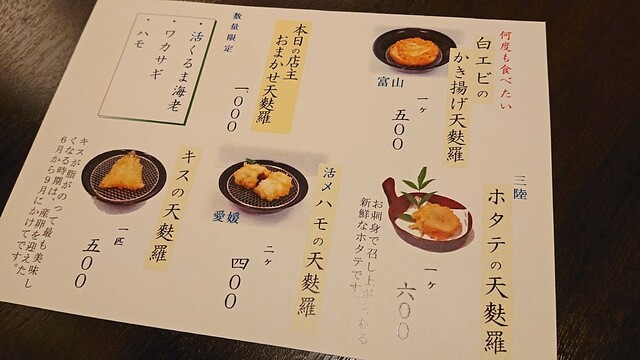 何度も食べたい
白エビの
かき揚げ天麩羅
富山
一ヶ
五〇〇
本日の店主
おまかせ天麩羅
数量限定
一、〇〇〇
・活くるま海老
・ワカサギ
・ハモ
三陸
ホタテの天麩羅
一ヶ
六〇〇
お刺身で召し上がれる
新鮮なホタテです。
活〆ハモの天麩羅
愛媛
二ヶ
四〇〇
キスの天麩羅
一匹
五〇〇
キスが脂がのって最も美味し
くなる時期は、産卵を迎えた
６月から９月にかけてです。